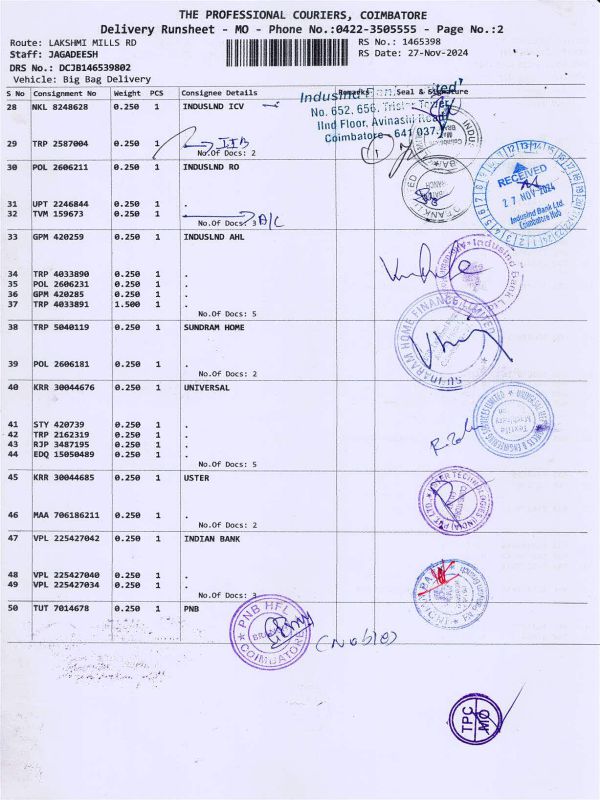 THE PROFESSIONAL COURIERS, COIMBATORE
Delivery Runsheet - MO - Phone No.:0422-3505555 - Page No.:2
Route: LAKSHMI MILLS RD RS No.: 1465398
Staff: JAGADEESH RS Date: 27-Nov-2024
DRS No.: DCJB146539802
Vehicle: Big Bag Delivery
S No Consignment No Weight PCS Consignee Details Remarks Seal & Signature
28 NKL 8248628 0.250 1 INDUSLND ICV
No. 652, 656, Tristar Tower,
IInd Floor, Avinashi Road
Coimbatore - 641 037.
29 TRP 2587004 0.250 1 IIB
No.Of Docs: 2
30 POL 2606211 0.250 1 INDUSLND RO
RECEIVED
27 NOV 2024
Indusind Bank Ltd.
Coimbatore Hub
31 UPT 2246844 0.250 1 .
32 TVM 159673 0.250 1 .
No.Of Docs: 3 B/C
33 GPM 420259 0.250 1 INDUSLND AHL
34 TRP 4033890 0.250 1 .
35 POL 2606231 0.250 1 .
36 GPM 420285 0.250 1 .
37 TRP 4033891 1.500 1 .
No.Of Docs: 5
38 TRP 5040119 0.250 1 SUNDRAM HOME
SUNDARAM HOME FINANCE LIMITED
39 POL 2606181 0.250 1 .
No.Of Docs: 2
40 KRR 30044676 0.250 1 UNIVERSAL
Textile
Machinery
41 STY 420739 0.250 1 .
42 TRP 2162319 0.250 1 .
43 RJP 3487195 0.250 1 .
44 EDQ 15050489 0.250 1 .
No.Of Docs: 5
45 KRR 30044685 0.250 1 USTER
USTER TECHNOLOGIES (INDIA) PVT. LTD.
46 MAA 706186211 0.250 1 .
No.Of Docs: 2
47 VPL 225427042 0.250 1 INDIAN BANK
48 VPL 225427040 0.250 1 .
49 VPL 225427034 0.250 1 .
No.Of Docs: 3
50 TUT 7014678 0.250 1 PNB
PNB HFL
COIMBATORE
TPC
MO